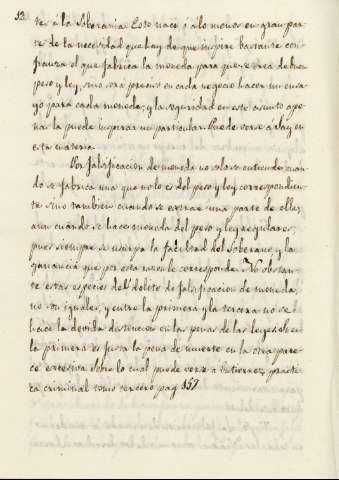 52.
te á la Soberania. Esto nació á lo menos en gran par-
te de la necesidad que hay de que inspire bastante con-
fianza el que fabrica la moneda para que se crea de buen
peso y ley, sino será preciso en cada negocio hacer un ensa-
yo para cada moneda; y la seguridad en este asunto ape-
nas la puede inspirar un particular. Puede verse á Say en
esta materia.
Por falsificacion de moneda no solo se entiende cuan-
do se fabrica una que no lo es del peso y ley correspondien-
te sino tambien cuando se extrae una parte de ella;
aun cuando se hace moneda del peso y ley regulares;
pues siempre se usurpa la facultad del Soberano y la
ganancia que por esta razon le corresponde. No obstan-
te estas especies del delito de falsificacion de moneda
no son iguales; y entre la primera y la tercera no se
hace la devida distincion en las penas de las leyes. Si en
la primera es justa la pena de muerte en la otra pare-
ce excesiva sobre lo cual puede verse a Gutierrez, practi-
ca criminal tomo tercero pag 157